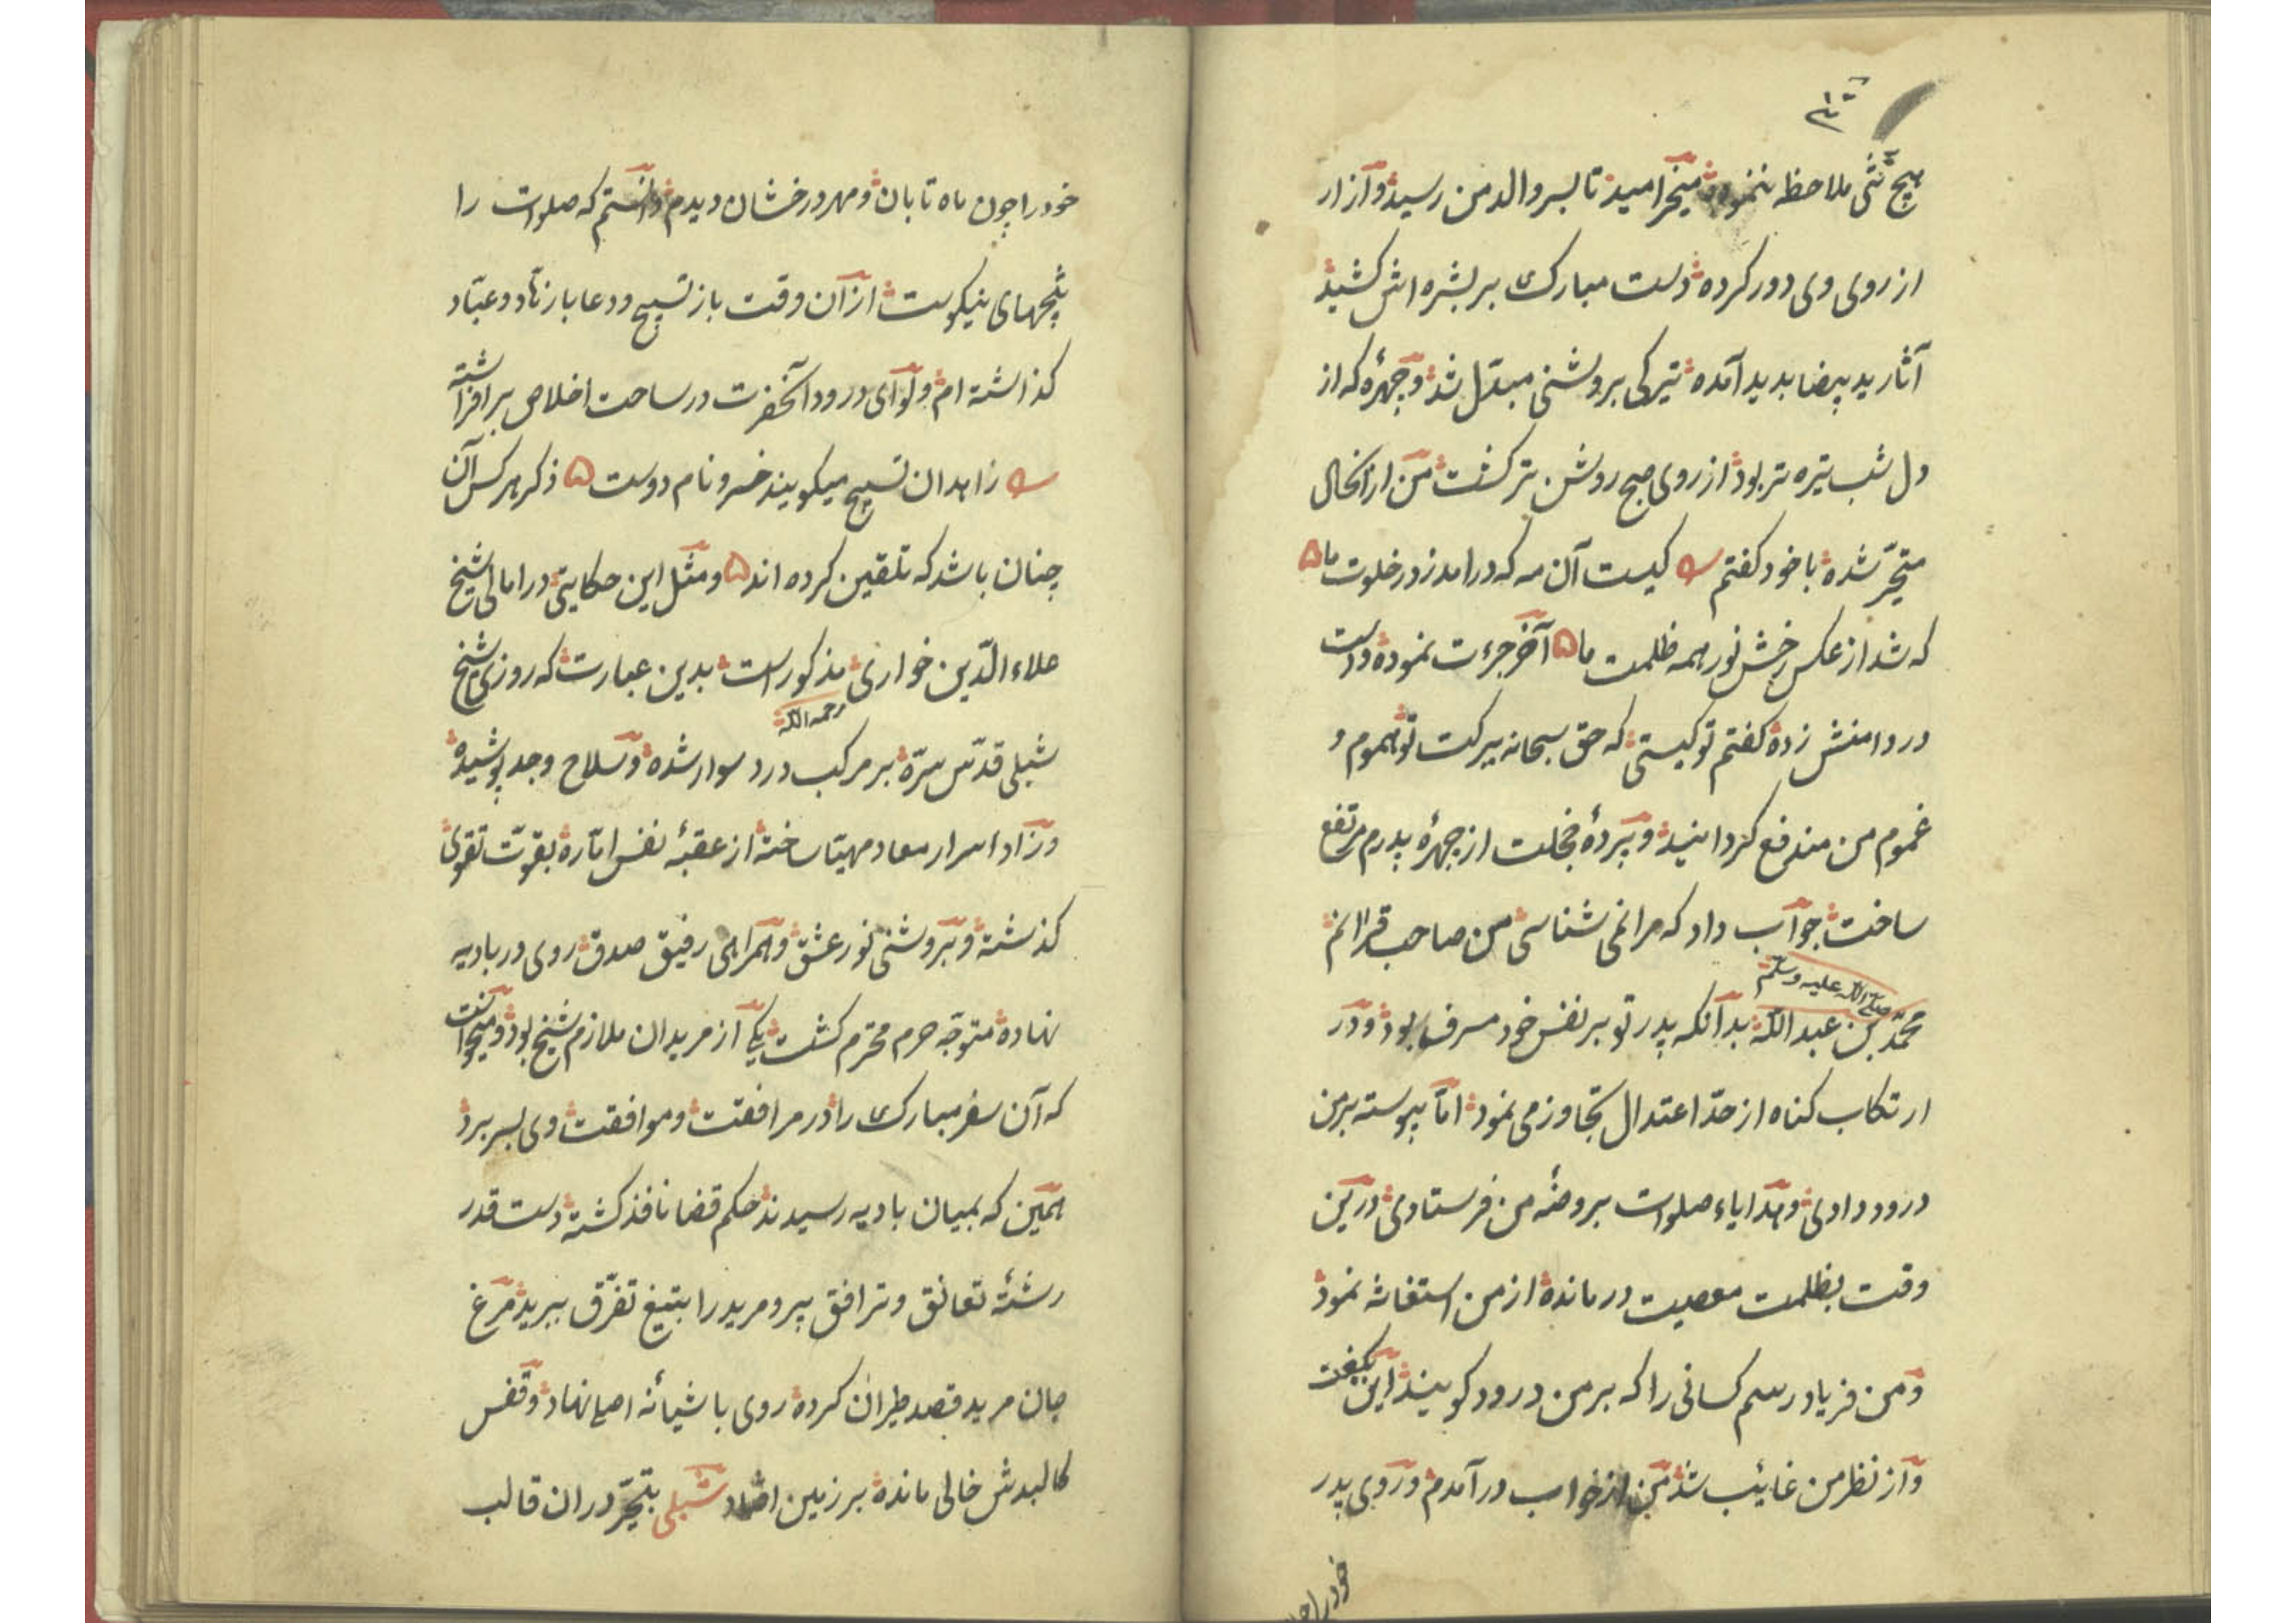 هیچ شی ملاحظه ننموده میخرامید تا بسر والد من رسید و آزار
از روی وی دور کرده دست مبارک بر بشره اش کشید
آثار ید بیضا بدید آمده تیرکی بروشنی مبدّل شد و چهرهٔ که از
دل شب تیره تر بود از روی صبح روشن تر کشت من از انحال
متحیّر شده با خود کفتم کیست آن مه که درامد ز در خلوت ما
که شد از عکس رخش نور همه ظلمت ما آخر جرءت نموده و دست
در دامنش زده کفتم تو کیستی که حق سبحانه ببرکت تو هموم و
غموم من مندفع کردانید و پردهٔ خجلت از چهرهٔ پدرم مرتفع
ساخت جواب داد که مرا نمی شناسی من صاحب قرانم
محمّد بن عبد اللّه صلی اللّه علیه وسلّم بدانکه پدر تو بر نفس خود مسرف بود و در
ارتکاب کناه از حدّ اعتدال تجاوز می نمود امّا پیوسته بر من
درود دادی و هدایاء صلوات بروضهٔ من فرستادی درین
وقت بظلمت معصیت درمانده از من استغاثه نمود
و من فریاد رسم کسانی را که بر من درود کویند این بکفت
و از نظر من غائب شد من از خواب درآمدم و روی پدر
خود را
خود را چون ماه تابان و مهر درخشان دیدم دانستم که صلوات را
نتیجهای نیکوست از آن وقت باز تسبیح و دعا بازهّاد و عبّاد
کذاشته ام و لوای درود آنحضرت در ساحت اخلاص برافراشته
زاهدان تسبیح میکویند خسرو نام دوست ذکر هر کس آن
چنان باشد که تلقین کرده اند و مثل این حکایتی در امالی شیخ
علاء الدّین خواری مذکور است بدین عبارت که روزی شیخ
شبلی قدّس سرّه رحمه اللّه بر مرکب درد سوار شده و سلاح وجد پوشیده
و زاد اسرار معاد مهیّا ساخته از عقبهٔ نفس امّاره بقوّت تقوی
کذشته و بروشنی نور عشق و همراهی رفیق صدق روی در بادیه
نهاده متوجّه حرم محترم کشت یکی از مریدان ملازم شیخ بود و میخواست
که آن سفر مبارک را در مرافقت و موافقت وی بسر برد
همین که بمیان بادیه رسیدند حکم قضا نافذ کشته دست قدر
رشتهٔ تعانق و ترافق پیر و مرید را بتیغ تفرّق ببرید مرغ
جان مرید قصد طیران کرده روی باشیانهٔ اصلی نهاد و قفس
کالبدش خالی مانده بر زمین افتاد شبلی بتحیّر دران قالب